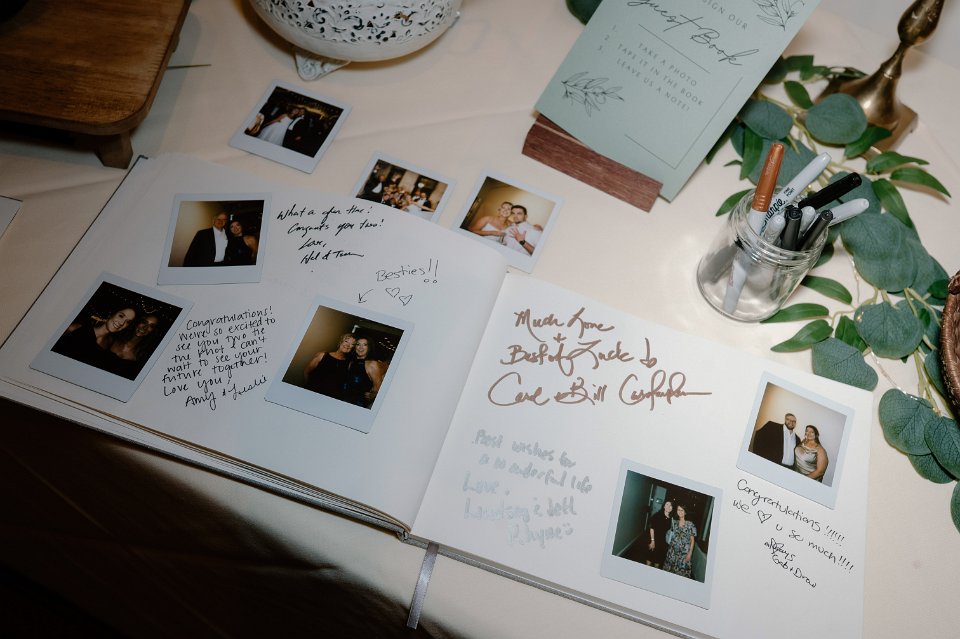 SIGN OUR
Guest Book
1. TAKE A PHOTO
2. TAPE IT IN THE BOOK
3. LEAVE US A NOTE!
What a fun time!
Congrats you two!
Love,
Besties!!
Congratulations!
We're so excited to
see you two tie
the knot & can't
wait to see your
future together!
Love you,
Amy & Leslie
Much Love
+
Best of Luck to
+ Bill
Best wishes for
a wonderful life
Love,
Lindsay & Jeff
Rhyne
Congratulations!!!!!
we ♡ u so much!!!!
always
Gab + Drew